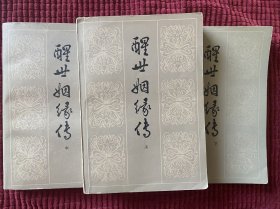 醒世姻缘传
中
醒世姻缘传
上
醒世姻缘传
下